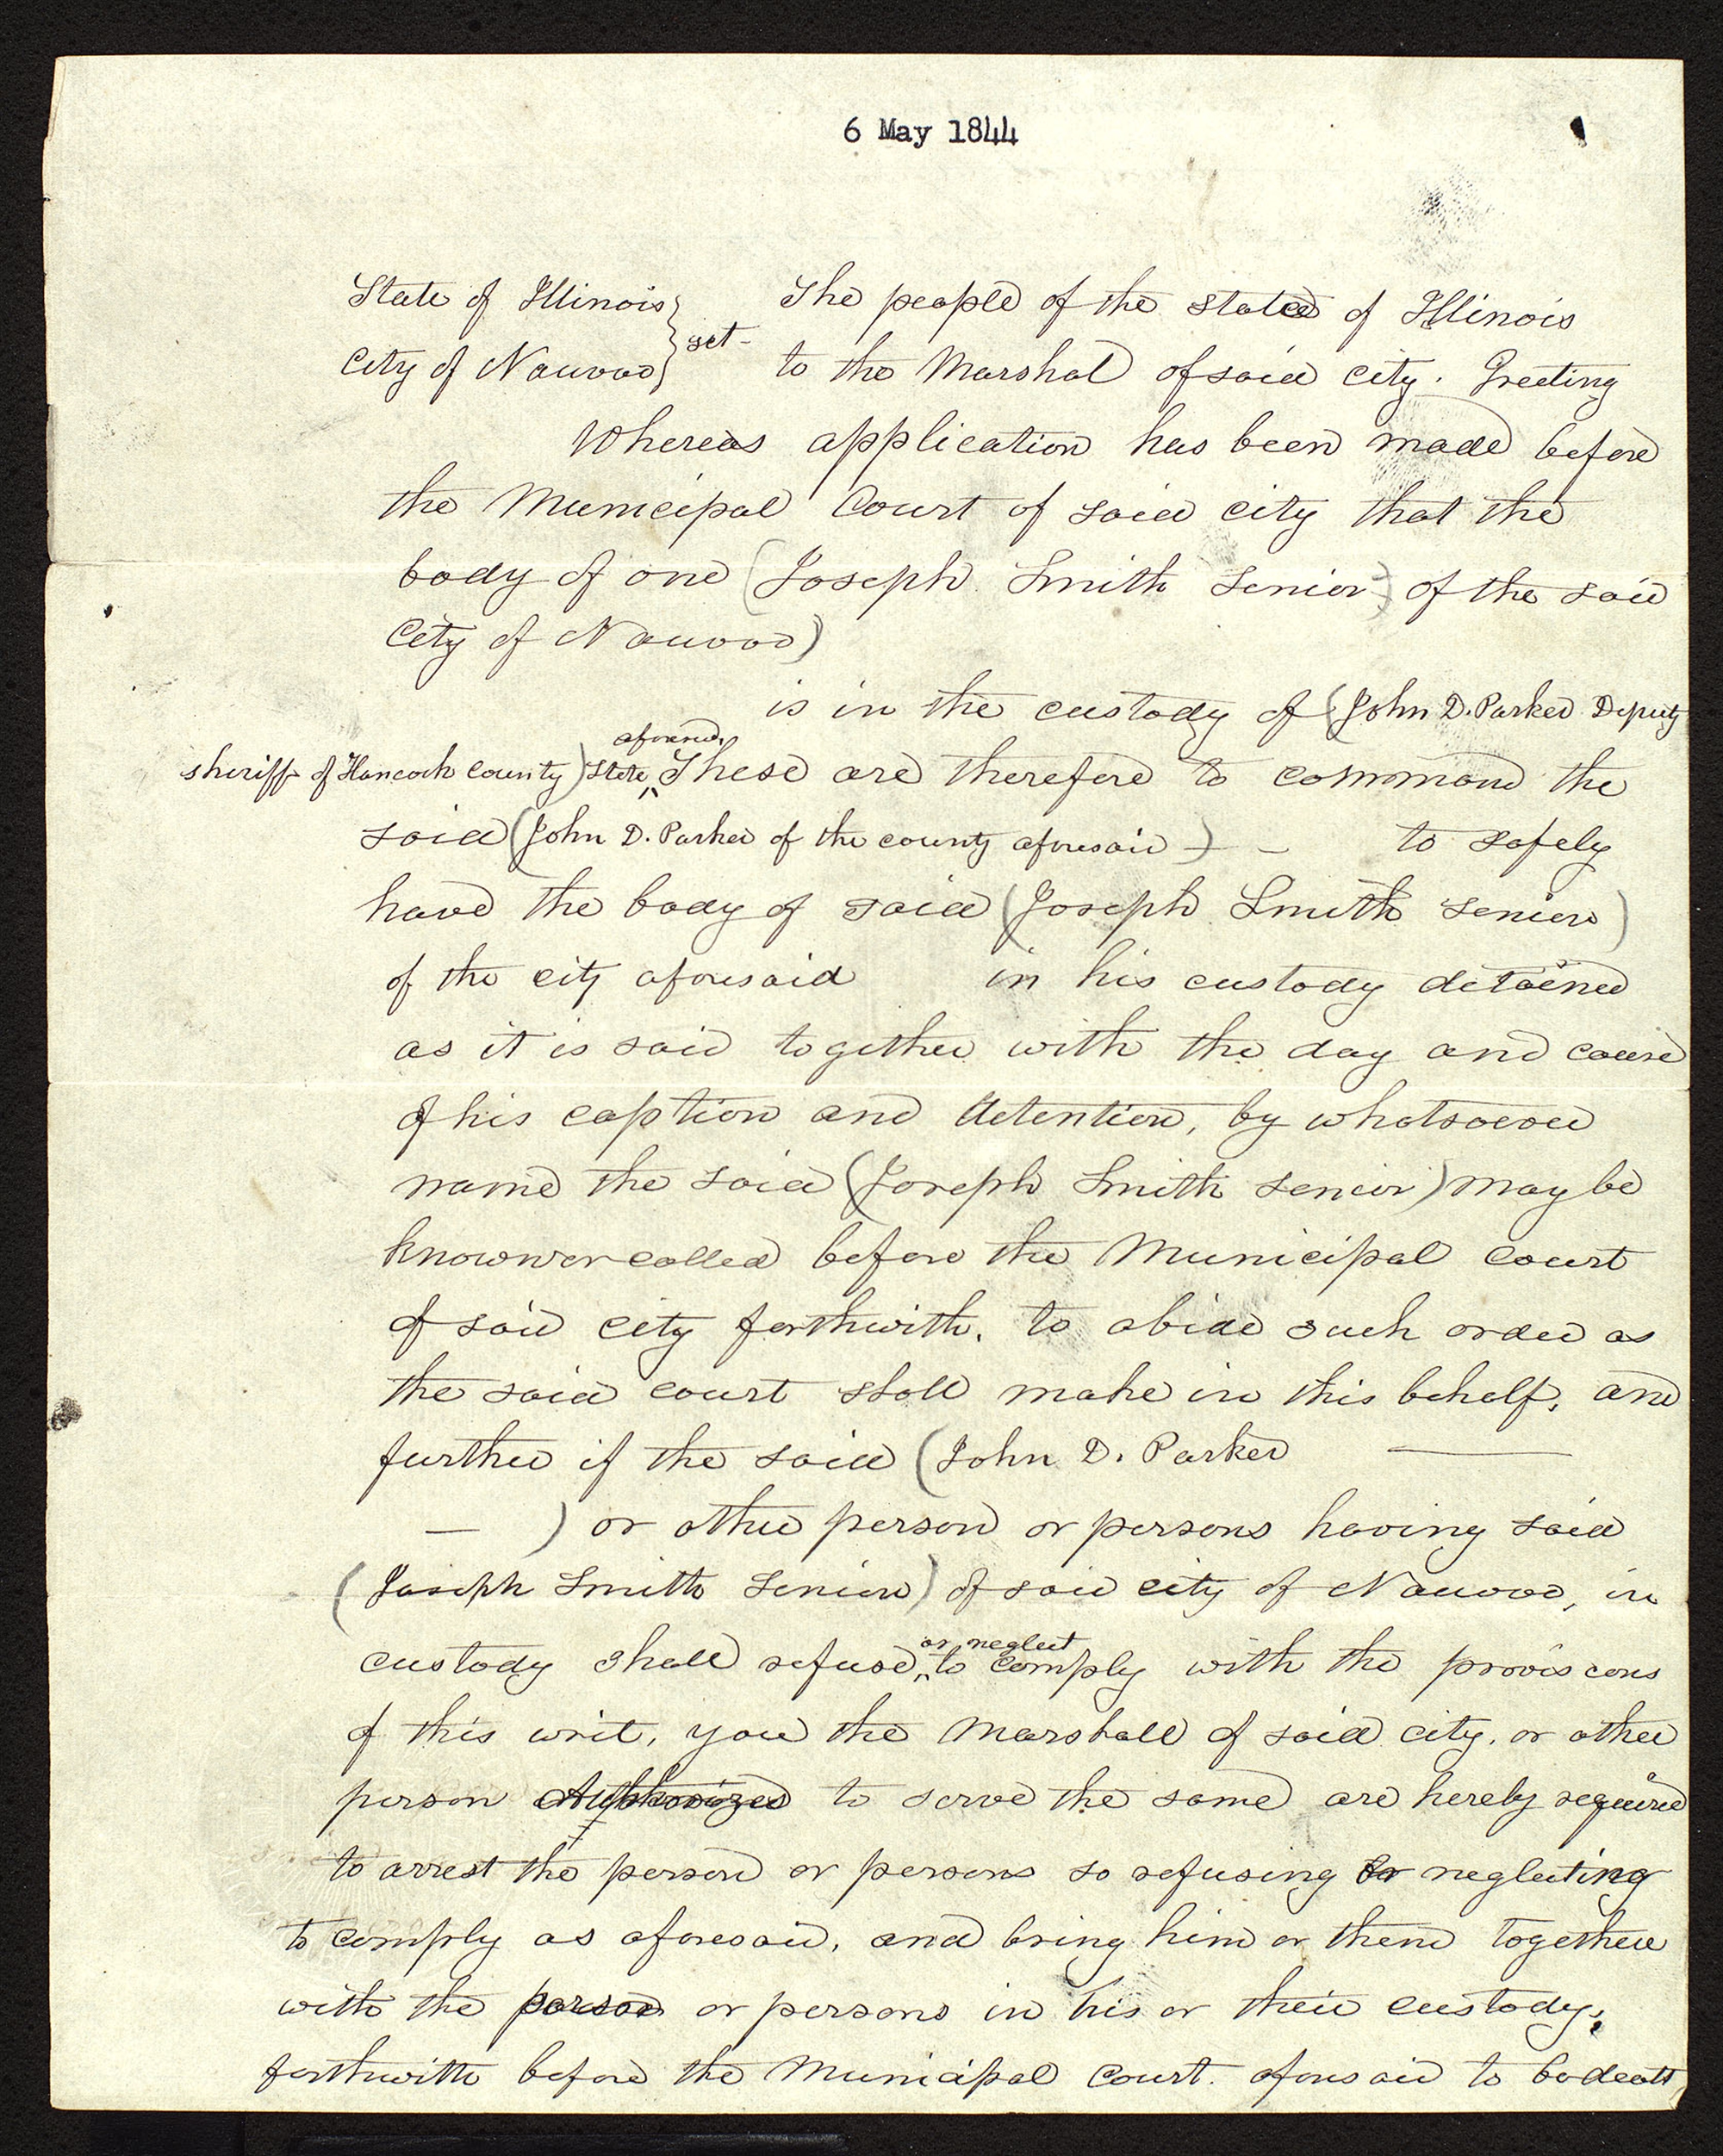 6 May 1844
State of Illinois } The people of the state of Illinois
City of Nauvoo } sct- to the Marshal of said city. Greeting
Whereas application has been made before
the Municipal Court of said city that the
body of one (Joseph Smith Senior) of the said
City of Nauvoo)
is in the custody of (John D. Parker Deputy
aforesaid,
sheriff of Hancock county) State ^ These are therefore to command the
said (John D. Parker of the county aforesaid -) - to safely
have the body of said (Joseph Smith Senior)
of the city aforesaid in his custody detained
as it is said together with the day and cause
of his caption and detention, by whatsoever
name the said (Joseph Smith Senior) may be
known or called before the Municipal Court
of said city forthwith, to abide such order as
the said court shall make in this behalf, and
further if the said (John D. Parker —
— ) or other person or persons having said
(Joseph Smith Senior) of said city of Nauvoo, in
or neglect
custody shall refuse, ^ to comply with the provisions
of this writ, you the Marshall of said city, or other
person Authorized to serve the same are hereby required
to arrest the person or persons so refusing or neglecting
to comply as aforesaid, and bring him or them together
with the person or persons in his or their custody,
forthwith before the Municipal Court. aforesaid to be dealt